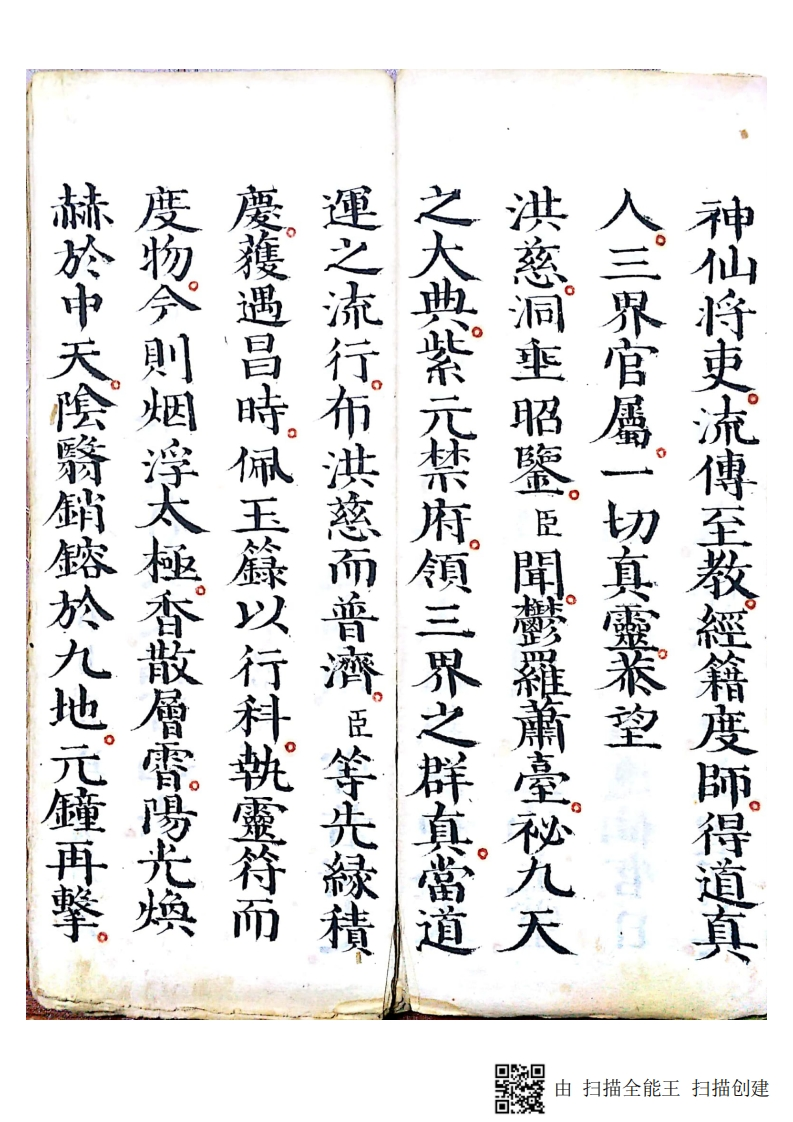 神仙将吏。流傳至教。經籍度師。得道真
人。三界官屬。一切真靈。恭望
洪慈。洞垂昭鑒。臣聞。鬱羅蕭臺。祕九天
之大典。紫元禁府。領三界之群真。當道
運之流行。布洪慈而普濟。臣等先緣積
慶。獲遇昌時。佩玉籙以行科。執靈符而
度物。今則烟浮太極。香散層霄。陽光煥
赫於中天。陰翳銷鎔於九地。元鐘再擊。
由 扫描全能王 扫描创建